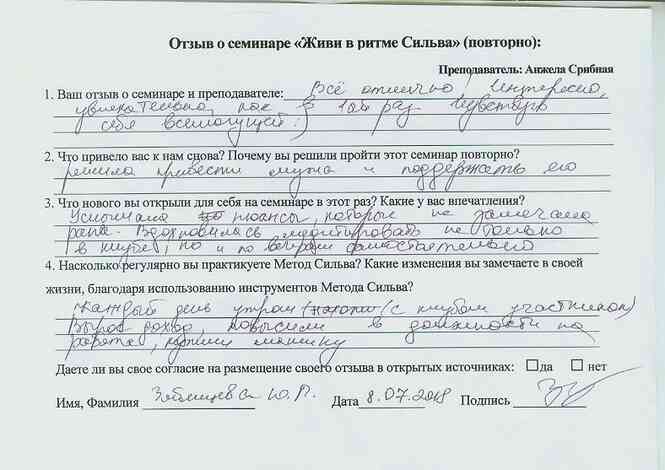 Отзыв о семинаре «Живи в ритме Сильва» (повторно):
Преподаватель: Анжела Срибная
1. Ваш отзыв о семинаре и преподавателе: Всё отлично, интересно,
увлекательно, как в 1ый раз. Чувствую
себя всемогущей :)
2. Что привело вас к нам снова? Почему вы решили пройти этот семинар повторно?
решила привести мужа и поддержать его
3. Что нового вы открыли для себя на семинаре в этот раз? Какие у вас впечатления?
Услышала нюансы, которые не замечала
ранее. Вдохновилась медитировать не только
в клубе, но и по вечерам самостоятельно
4. Насколько регулярно вы практикуете Метод Сильва? Какие изменения вы замечаете в своей
жизни, благодаря использованию инструментов Метода Сильва?
Каждый день утром (с клубом участников)
Вырос доход, повысили в должности на
работе, купили машину
Даете ли вы свое согласие на размещение своего отзыва в открытых источниках: да нет
Имя, Фамилия Ю. Дата 8.07.2018 Подпись